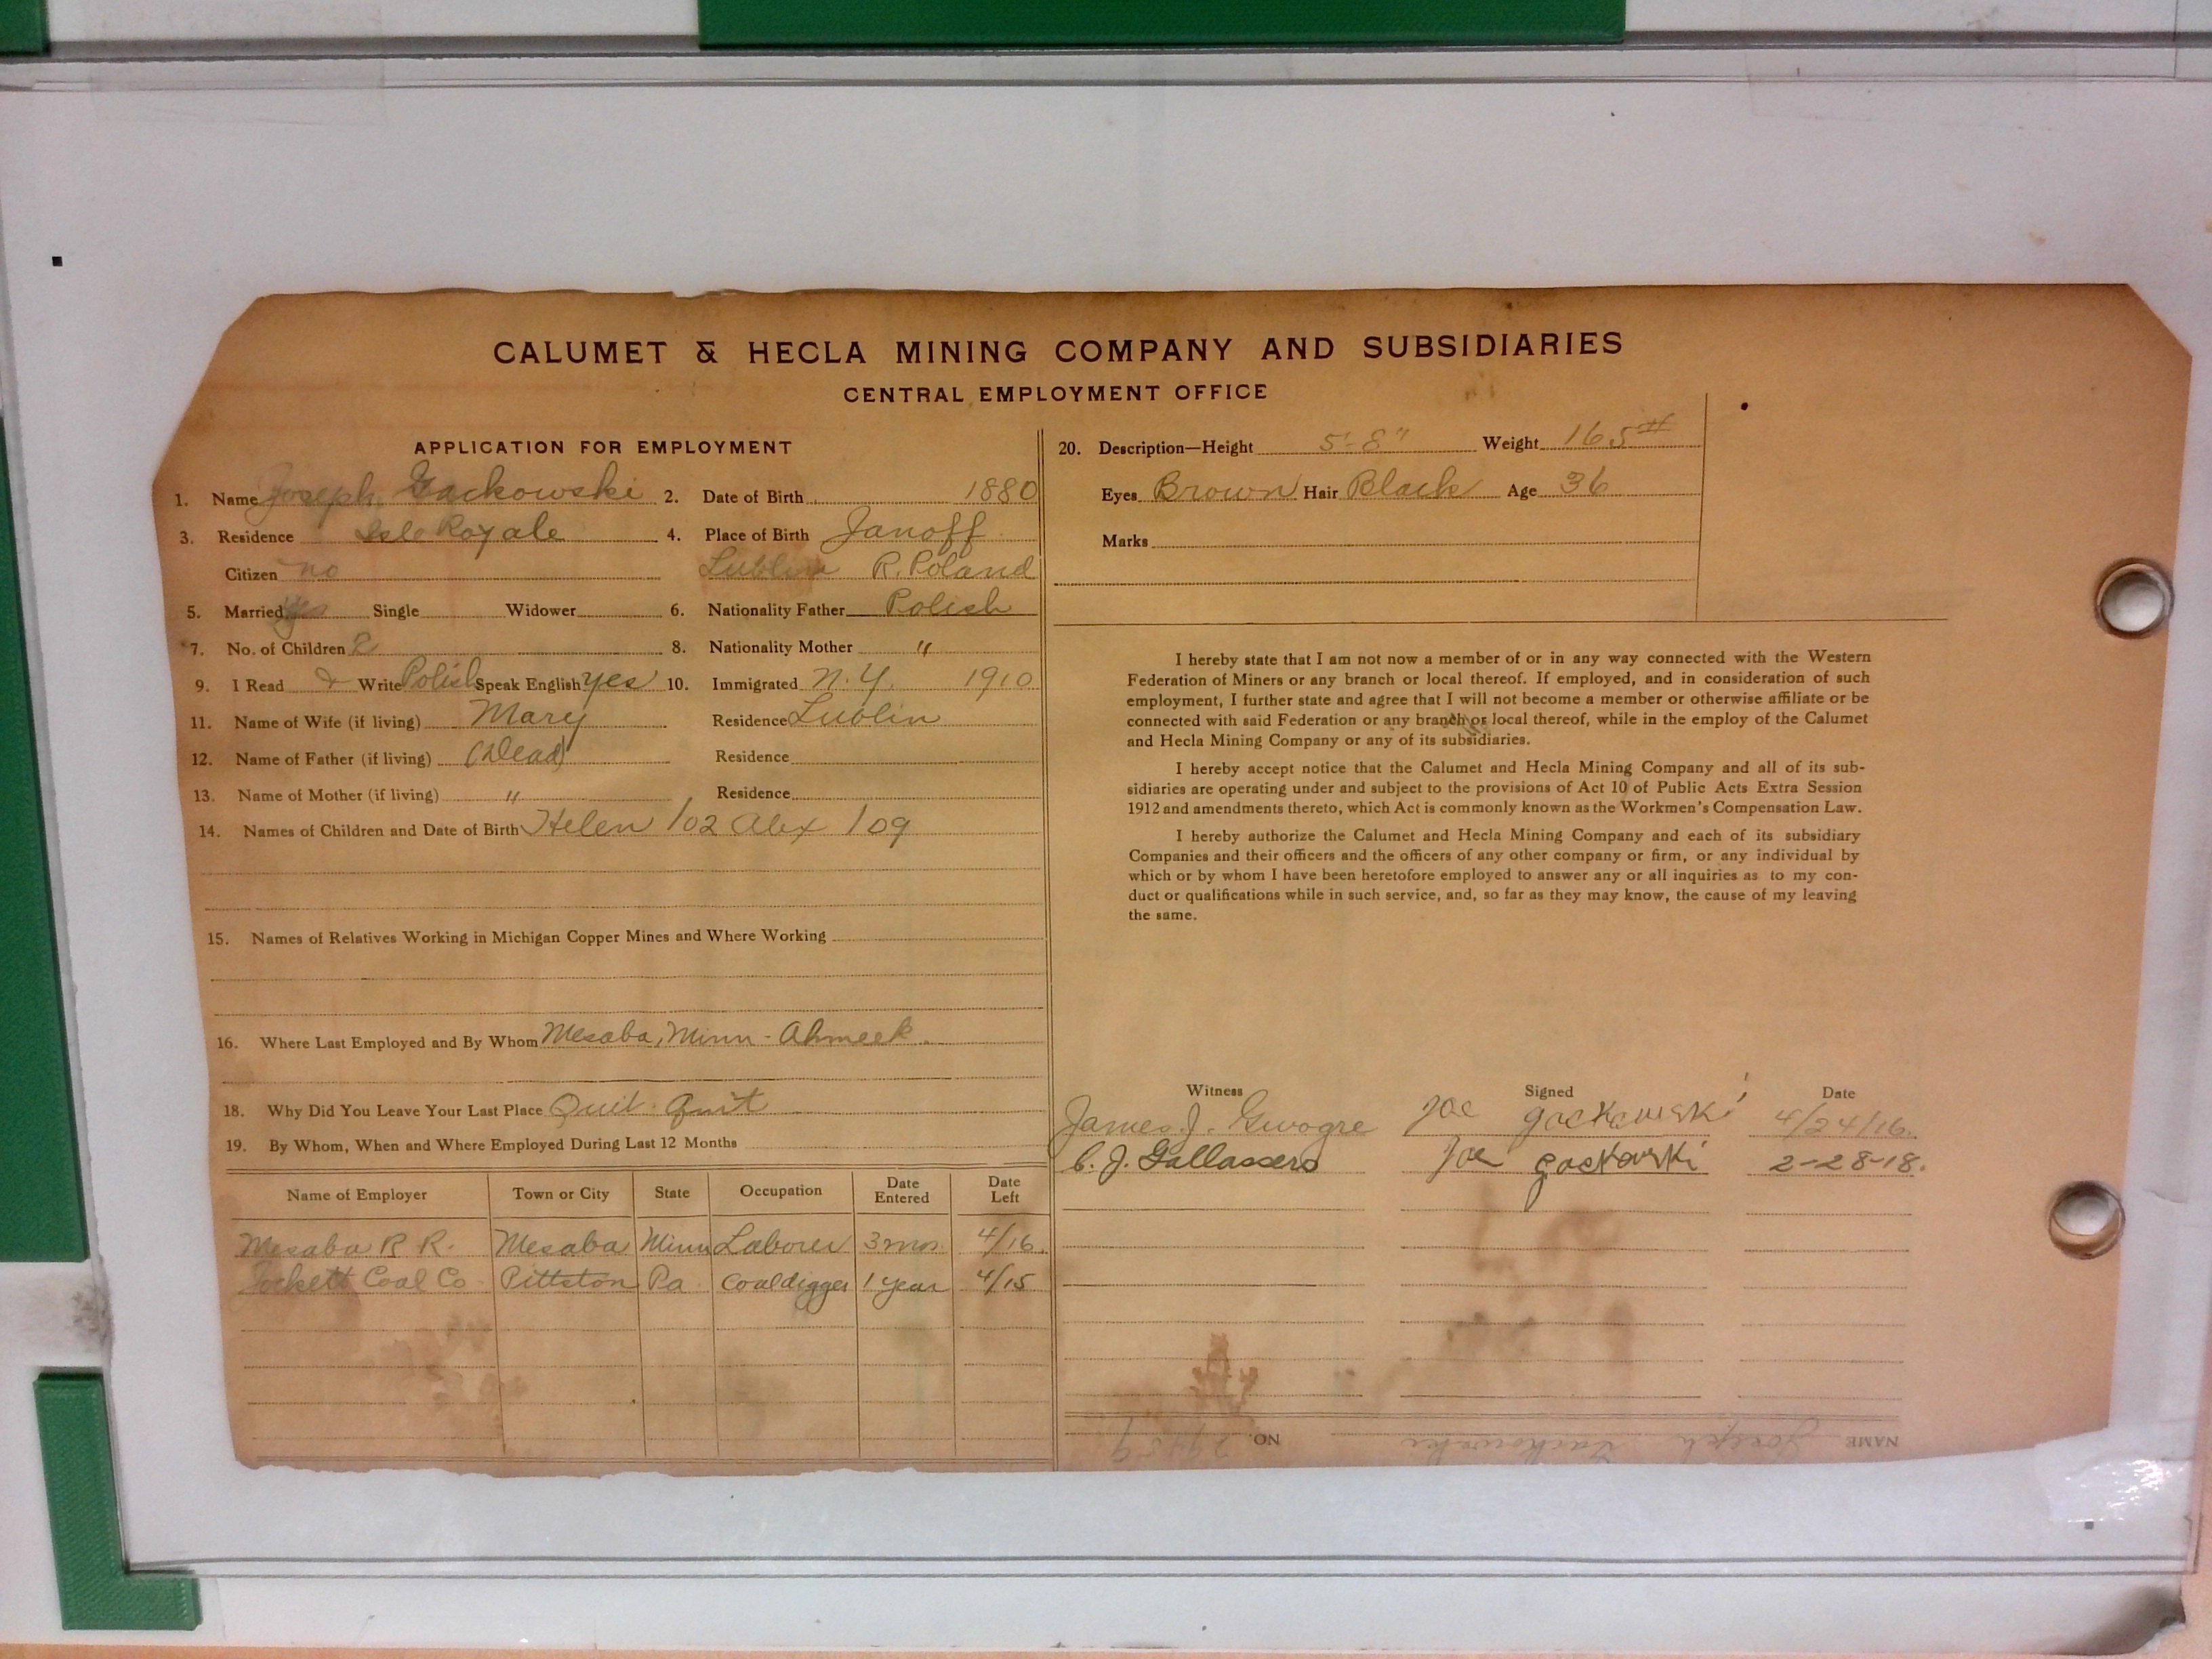 CALUMET & HECLA MINING COMPANY AND SUBSIDIARIES
CENTRAL EMPLOYMENT OFFICE
APPLICATION FOR EMPLOYMENT
1. Name Joseph Gackowski 2. Date of Birth 1880
3. Residence Isle Royale 4. Place of Birth Janoff
Citizen no Lublin R. Poland
5. Married yes Single Widower 6. Nationality Father Polish
7. No. of Children 2 8. Nationality Mother "
9. I Read & Write Polish Speak English yes 10. Immigrated N.Y. 1910
11. Name of Wife (if living) Mary Residence Lublin
12. Name of Father (if living) (Dead) Residence
13. Name of Mother (if living) " Residence
14. Names of Children and Date of Birth Helen /02 Alex /09
15. Names of Relatives Working in Michigan Copper Mines and Where Working
16. Where Last Employed and By Whom Mesaba, Minn - Ahmeek
18. Why Did You Leave Your Last Place Quit - Quit
19. By Whom, When and Where Employed During Last 12 Months
Name of Employer Town or City State Occupation Date Entered Date Left
Mesaba R R. Mesaba Minn Laborer 3 mos. 4/16.
Coal Co. Pittston Pa. Coaldigger 1 year 4/15
20. Description—Height 5'-8" Weight 165#
Eyes Brown Hair Black Age 36
Marks
I hereby state that I am not now a member of or in any way connected with the Western
Federation of Miners or any branch or local thereof. If employed, and in consideration of such
employment, I further state and agree that I will not become a member or otherwise affiliate or be
connected with said Federation or any branch or local thereof, while in the employ of the Calumet
and Hecla Mining Company or any of its subsidiaries.
I hereby accept notice that the Calumet and Hecla Mining Company and all of its sub-
sidiaries are operating under and subject to the provisions of Act 10 of Public Acts Extra Session
1912 and amendments thereto, which Act is commonly known as the Workmen's Compensation Law.
I hereby authorize the Calumet and Hecla Mining Company and each of its subsidiary
Companies and their officers and the officers of any other company or firm, or any individual by
which or by whom I have been heretofore employed to answer any or all inquiries as to my con-
duct or qualifications while in such service, and, so far as they may know, the cause of my leaving
the same.
Witness Signed Date
James J. Joe Gackowski 4/24/16.
C. J. Gallassero Joe Gackowski 2-28-18.
NAME Joseph Gackowski NO.